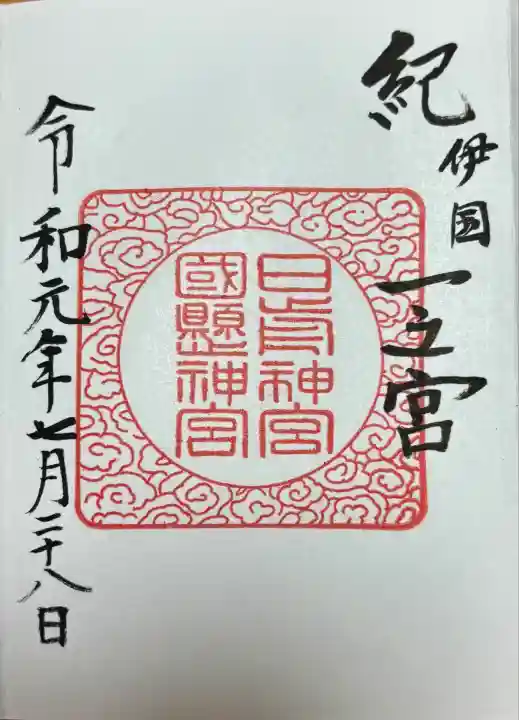 紀伊国一之宮
日前神宮
國懸神宮
令和元年七月二十八日